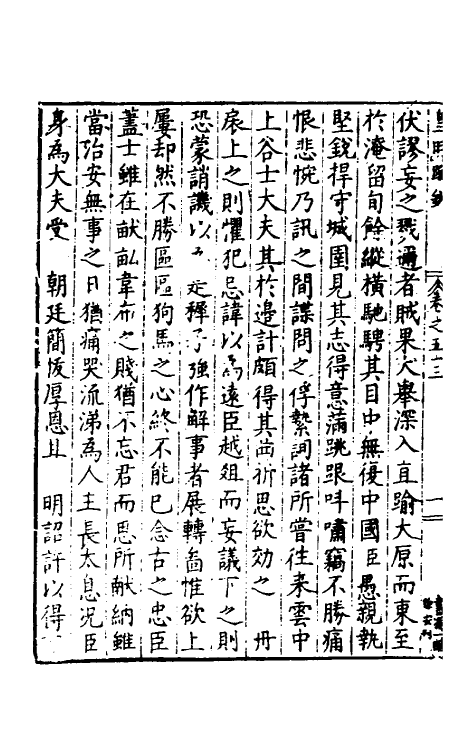 伏謬妄之戮適者賊果大舉深入直踰大原而東至
於淹留旬餘縱橫馳騁其目中無復中國臣愚親執
堅銳捍守城圍見其志得意滿跳踉呌嘯竊不勝痛
恨悲惋乃訊之間諜問之俘縶詞諸所嘗往来雲中
上谷士大夫其於邊計頗得其一二祈思欲効之 冊
扆上之則懼犯忌諱以為遠臣越俎而妄議下之則
恐蒙誚譏以為 穉子強作解事者展轉啚惟欲上
屢却然不勝區區狗馬之心終不能已念古之忠臣
蓋士雖在畎畝韋布之賤猶不忘君而思所献納雖
當治安無事之日猶痛哭流涕為人主長太息况臣
身為大夫受 朝廷簡恤厚恩且 明詔許以得
皇明 卷之五十三